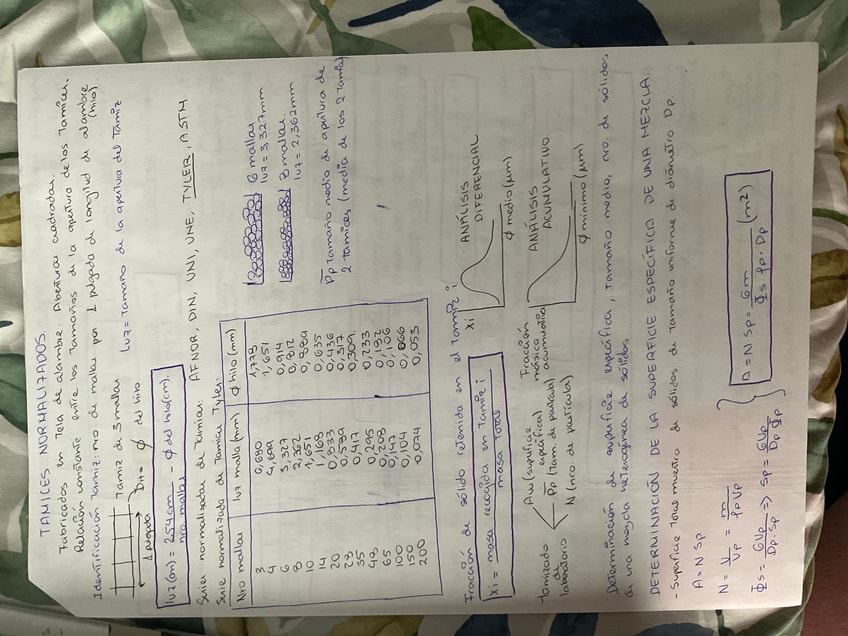 TAMICES NORMALIZADOS.
Fabricados en tela de alambre. Aberturas cuadradas.
Relación constante entre los tamaños de la apertura de los tamices.
Identificación tamiz: no de mallas por 1 pulgada de longitud de alambre (hilo)
Tamiz de 3 mallas
DH = ϕ del hilo
1 pulgada
Luz = tamaño de la apertura del tamiz
luz (cm) = 2,54 cm / nro mallas - ϕ del hilo (cm).
Series normalizadas de tamices: AFNOR, DIN, UNI, UNE, TYLER, ASTM
Serie normalizada de tamices Tyler:
Nro mallas luz malla (mm) ϕ hilo (mm)
3 6,680 1,778
4 4,699 1,651
6 3,327 0,914
8 2,362 0,812
10 1,651 0,889
14 1,168 0,635
20 0,833 0,436
28 0,589 0,317
35 0,417 0,309
48 0,295 0,233
65 0,208 0,182
100 0,147 0,106
150 0,104 0,066
200 0,074 0,053
6 mallas
luz = 3,327mm
8 mallas
luz = 2,362mm
D̅p tamaño medio de apertura de
2 tamices (media de los 2 tamices)
Fracción de sólido retenida en el tamiz i
xi = masa recogida en tamiz i / masa total
xi
ANÁLISIS
DIFERENCIAL
ϕ medio (μm)
Tamizado
de
laboratorio
Aw (superficie
específica)
D̅p (tam. de partícula)
N (nro. de partícula)
Fracción
másica
acumulativa
ANÁLISIS
ACUMULATIVO
ϕ mínimo (μm)
Determinación de superficie específica, tamaño medio, nro. de sólidos
de una mezcla heterogénea de sólidos
DETERMINACIÓN DE LA SUPERFICIE ESPECÍFICA DE UNA MEZCLA
- Superficie total muestra de sólidos de tamaño uniforme de diámetro Dp.
A = N Sp
N = V / Vp = m / ρp Vp
Φs = 6Vp / Dp · Sp => Sp = 6Vp / Dp Φp
A = N Sp = 6m / Φs ρp · Dp (m²)